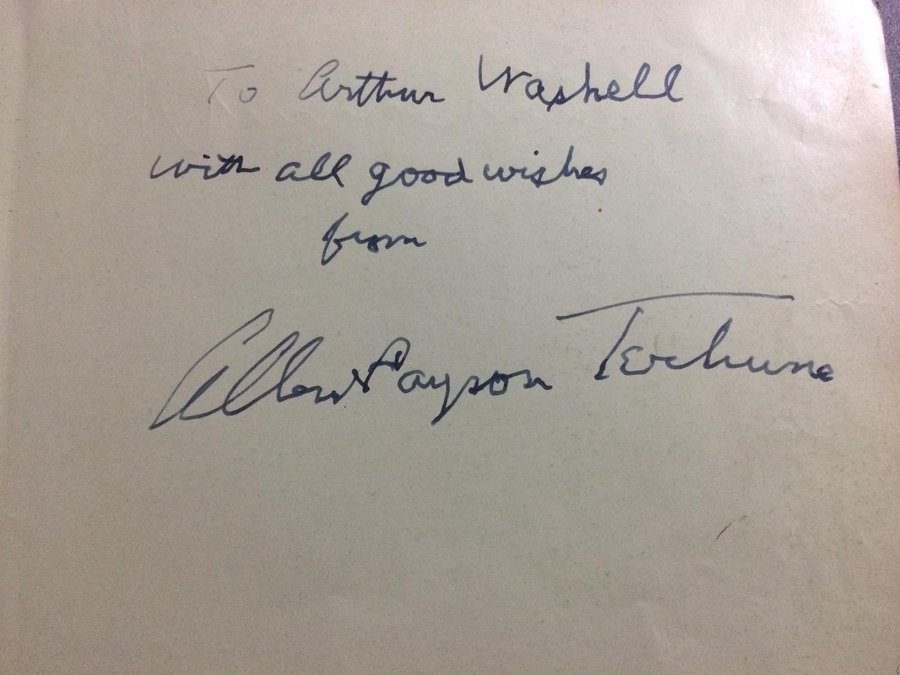 To Arthur Washell
with all good wishes
from
Albert Payson Terhune